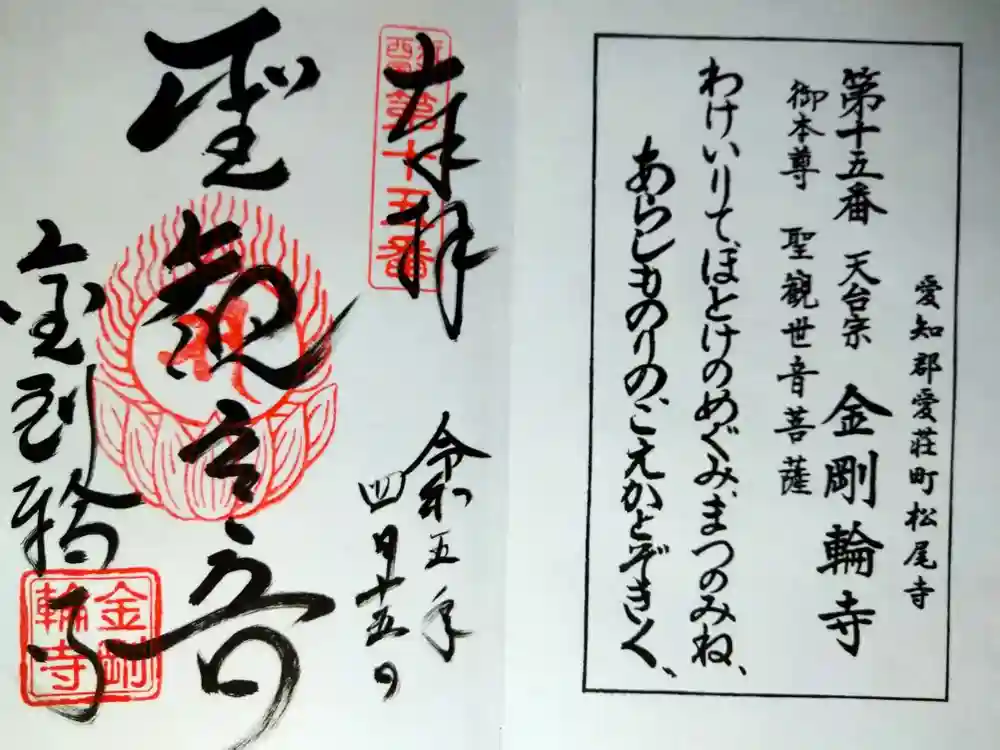 愛知郡愛荘町松尾寺
第十五番 天台宗 金剛輪寺
御本尊 聖観世音菩薩
わけいりてほとけのめぐみ、まつのみね、
あらしものりの、こえかとぞきく、
奉拝
西国
第十五番
令和五年
四月十五日
聖観音
金剛輪寺
金剛輪寺